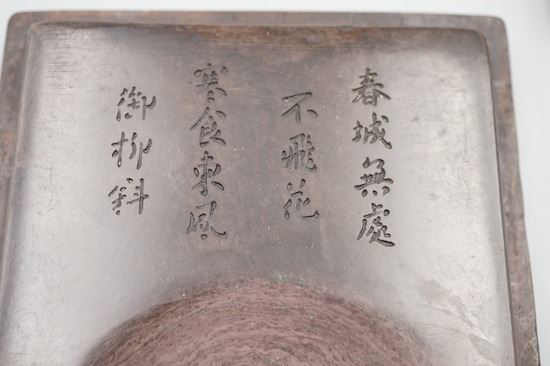 春城無處
不飛花
寒食東風
御柳斜